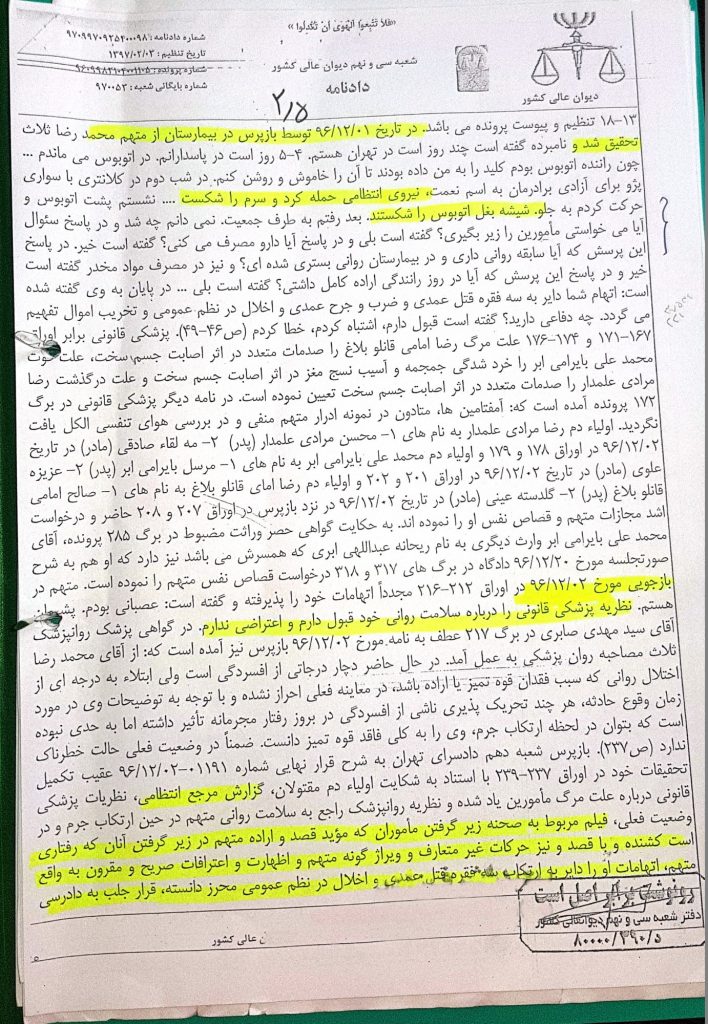 «فلا تتبعوا الهوی ان تعدلوا»
شماره دادنامه: ۹۷۰۹۹۷۰۹۲۵۴۰۰۰۹۸
تاریخ تنظیم: ۱۳۹۷/۰۲/۰۳
شماره پرونده: ۹۶۰۹۹۸۲۱۰۴۰۰۱۱۰۵
شماره بایگانی شعبه: ۹۷۰۰۵۳
شعبه سی و نهم دیوان عالی کشور
دادنامه
دیوان عالی کشور
۱۳-۱۸ تنظیم و پیوست پرونده می باشد. در تاریخ ۹۶/۱۲/۰۱ توسط بازپرس در بیمارستان از متهم محمد رضا ثلاث
تحقیق شد و نامبرده گفته است چند روز است در تهران هستم. ۴-۵ روز است در پاسدارانم. در اتوبوس می ماندم ...
چون راننده اتوبوس بودم کلید را به من داده بودند تا آن را خاموش و روشن کنم. در شب دوم در کلانتری با سواری
پژو برای آزادی برادرمان به اسم نعمت، نیروی انتظامی حمله کرد و سرم را شکست .... نشستم پشت اتوبوس و
حرکت کردم به جلو. شیشه بغل اتوبوس را شکستند. بعد رفتم به طرف جمعیت. نمی دانم چه شد و در پاسخ سئوال
آیا می خواستی مأمورین را زیر بگیری؟ گفته است بلی و در پاسخ آیا دارو مصرف می کنی؟ گفته است خیر. در پاسخ
این پرسش که آیا سابقه روانی داری و در بیمارستان روانی بستری شده ای؟ و نیز در مصرف مواد مخدر گفته است
خیر و در پاسخ این پرسش که آیا در روز رانندگی اراده کامل داشتی؟ گفته است بلی ... در پایان به وی گفته شده
است: اتهام شما دایر به سه فقره قتل عمدی و ضرب و جرح عمدی و اخلال در نظم عمومی و تخریب اموال تفهیم
می گردد. چه دفاعی دارید؟ گفته است قبول دارم، اشتباه کردم، خطا کردم (ص۴۶-۴۹). پزشکی قانونی برابر اوراق
۱۶۷-۱۷۱ و ۱۷۴-۱۷۶ علت مرگ رضا امامی قانلو بلاغ را صدمات متعدد در اثر اصابت جسم سخت، علت فوت
محمد علی بایرامی ابر را خرد شدگی جمجمه و آسیب نسج مغز در اثر اصابت جسم سخت و علت درگذشت رضا
مرادی علمدار را صدمات متعدد در اثر اصابت جسم سخت تعیین نموده است. در نامه دیگر پزشکی قانونی در برگ
۱۷۲ پرونده آمده است که: آمفتامین ها، متادون در نمونه ادرار متهم منفی و در بررسی هوای تنفسی الکل یافت
نگردید. اولیاء دم رضا مرادی علمدار به نام های ۱- محسن مرادی علمدار (پدر) ۲- مه لقاء صادقی (مادر) در تاریخ
۹۶/۱۲/۰۲ در اوراق ۱۷۸ و ۱۷۹ و اولیاء دم محمد علی بایرامی ابر به نام های ۱- مرسل بایرامی ابر (پدر) ۲- عزیزه
علوی (مادر) در تاریخ ۹۶/۱۲/۰۲ در اوراق ۲۰۱ و ۲۰۲ و اولیاء دم رضا امای قانلو بلاغ به نام های ۱- صالح امامی
قانلو بلاغ (پدر) ۲- گلدسته عینی (مادر) در تاریخ ۹۶/۱۲/۰۲ در نزد بازپرس در اوراق ۲۰۷ و ۲۰۸ حاضر و درخواست
اشد مجازات متهم و قصاص نفس او را نموده اند. به حکایت گواهی حصر وراثت مضبوط در برگ ۲۸۵ پرونده، آقای
محمد علی بایرامی ابر وارث دیگری به نام ریحانه عبداللهی ابری که همسرش می باشد نیز دارد که او هم به شرح
صورتجلسه مورخ ۹۶/۱۲/۲۰ دادگاه در برگ های ۳۱۷ و ۳۱۸ درخواست قصاص نفس متهم را نموده است. متهم در
بازجویی مورخ ۹۶/۱۲/۰۲ در اوراق ۲۱۲-۲۱۶ مجدداً اتهامات خود را پذیرفته و گفته است: عصبانی بودم. پشیمان
هستم. نظریه پزشکی قانونی را درباره سلامت روانی خود قبول دارم و اعتراضی ندارم. در گواهی پزشک روانپزشک
آقای سید مهدی صابری در برگ ۲۱۷ عطف به نامه مورخ ۹۶/۱۲/۰۲ بازپرس نیز آمده است که: از آقای محمد رضا
ثلاث مصاحبه روان پزشکی به عمل آمد. در حال حاضر دچار درجاتی از افسردگی است ولی ابتلاء به درجه ای از
اختلال روانی که سبب فقدان قوه تمیز یا اراده باشد، در معاینه فعلی احراز نشده و با توجه به توضیحات وی در مورد
زمان وقوع حادثه، هر چند تحریک پذیری ناشی از افسردگی در بروز رفتار مجرمانه تأثیر داشته اما به حدی نبوده
است که بتوان در لحظه ارتکاب جرم، وی را به کلی فاقد قوه تمیز دانست. ضمناً در وضعیت فعلی حالت خطرناک
ندارد (ص۲۳۷). بازپرس شعبه دهم دادسرای تهران به شرح قرار نهایی شماره ۰۱۱۹۱-۹۶/۱۲/۰۲ عقیب تکمیل
تحقیقات خود در اوراق ۲۳۷-۲۳۹ با استناد به شکایت اولیاء دم مقتولان، گزارش مرجع انتظامی، نظریات پزشکی
قانونی درباره علت مرگ مأمورین یاد شده و نظریه روانپزشک راجع به سلامت روانی متهم در حین ارتکاب جرم و در
وضعیت فعلی، فیلم مربوط به صحنه زیر گرفتن مأموران که مؤید قصد و اراده متهم در زیر گرفتن آنان که رفتاری
است کشنده و با قصد و نیز حرکات غیر متعارف و ویراژ گونه متهم و اظهارت و اعترافات صریح و مقرون به واقع
متهم، اتهامات او را دایر به ارتکاب سه فقره قتل عمدی و اخلال در نظم عمومی محرز دانسته، قرار جلب به دادرسی
رونوشت برابر اصل است
دفتر شعبه سی و نهم دیوانعالی کشور
۸۰۰۰۰/۳۹۰/۵
ن عالی کشور